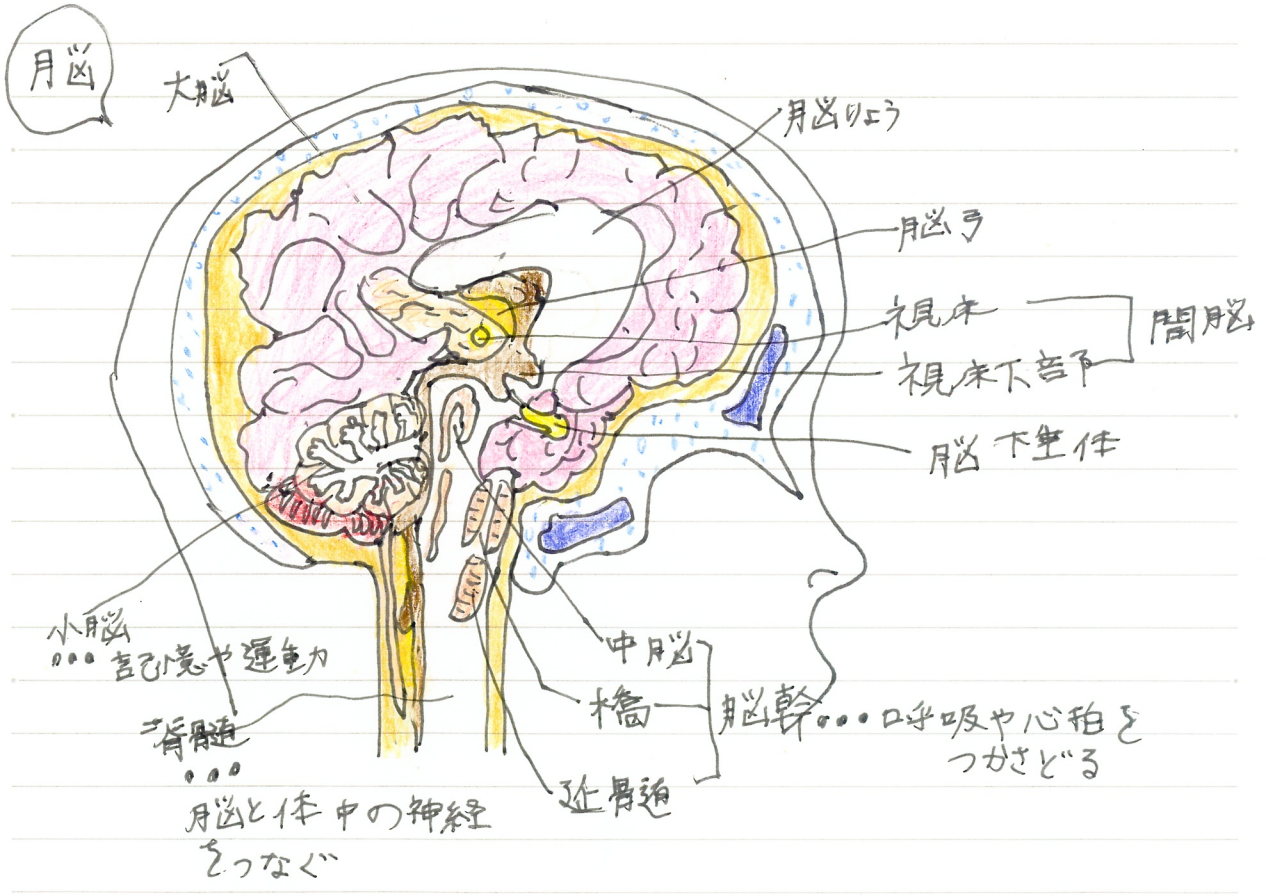 脳
大脳
脳りょう
脳弓
視床
視床下部
間脳
脳下垂体
小脳
・・・記憶や運動
脊髄
・・・
脳と体中の神経
をつなぐ
中脳
橋
延骨道
脳幹・・・呼吸や心拍を
つかさどる